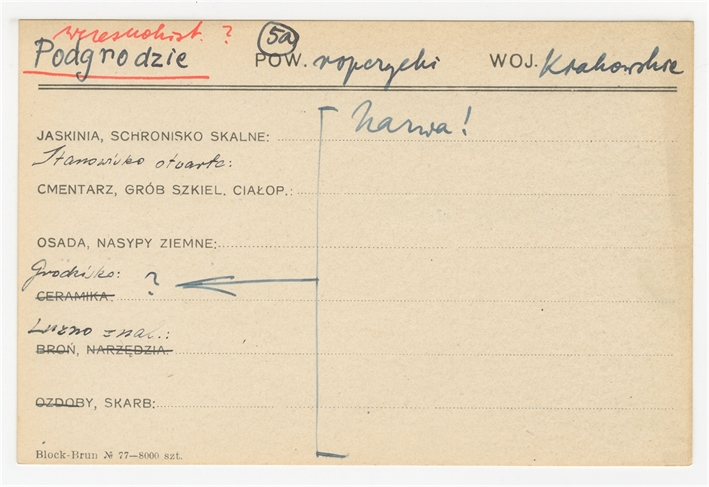 wczesnohist. ?
Podgrodzie 5a POW. ropczycki WOJ. Krakowskie
Nazwa!
JASKINIA, SCHRONISKO SKALNE:
Stanowisko otwarte:
CMENTARZ, GRÓB SZKIEL. CIAŁOP.:
OSADA, NASYPY ZIEMNE:
Grodzisko: ?
CERAMIKA:
Luźno znal.:
BROŃ, NARZĘDZIA:
OZDOBY, SKARB:
Block-Brun № 77—8000 szt.